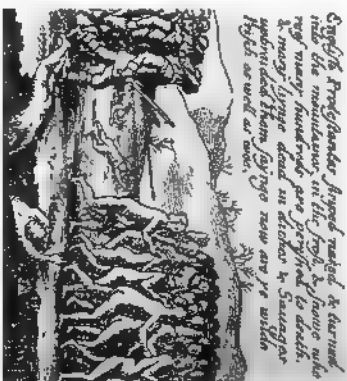 English Protestantes striped naked & turned
into the mountaines in the frost, & snowe, whe
reof many hundreds are perished to death,
& many liynge dead in diches & Savages
upbraided them sayinge now are ye wilde
Irish as well as wee.